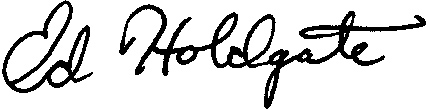 Ed Holdgate